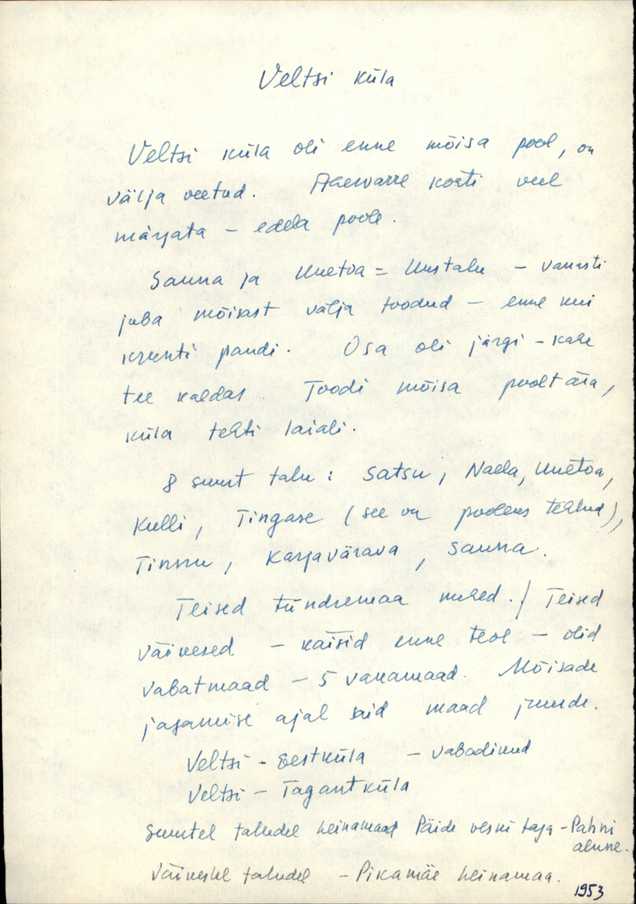 Veltsi küla
Veltsi küla oli enne mõisa pool, on
välja veetud. koeti veel
märjata – edela poole.
Sauna ja Uuetoa = Uustalu – vanasti
juba mõisast välja toodud – enne kui
krunti pandi. Osa oli järgi – kahe
tee kaldas. Toodi mõisa poolt ära,
küla tehti laiali.
8 suurt talu: Satsu, Naela, Uuetoa,
Kulli, Tingase (see on pooleks tehtud),
Tinnu, Karjavärava, Sauna.
Teised tündremaa mehed./ Teised
väikesed – käisid enne teol – olid
vabatmaad – 5 vakamaad. Mõisade
jagamise ajal said maad juurde.
Veltsi – Eestküla – vabadikud
Veltsi – Tagantküla
Suurtel taludel heinamaad Päide veski taga – Pahni
alune.
Väikestel taludel – Pikamäe heinamaa.
1953